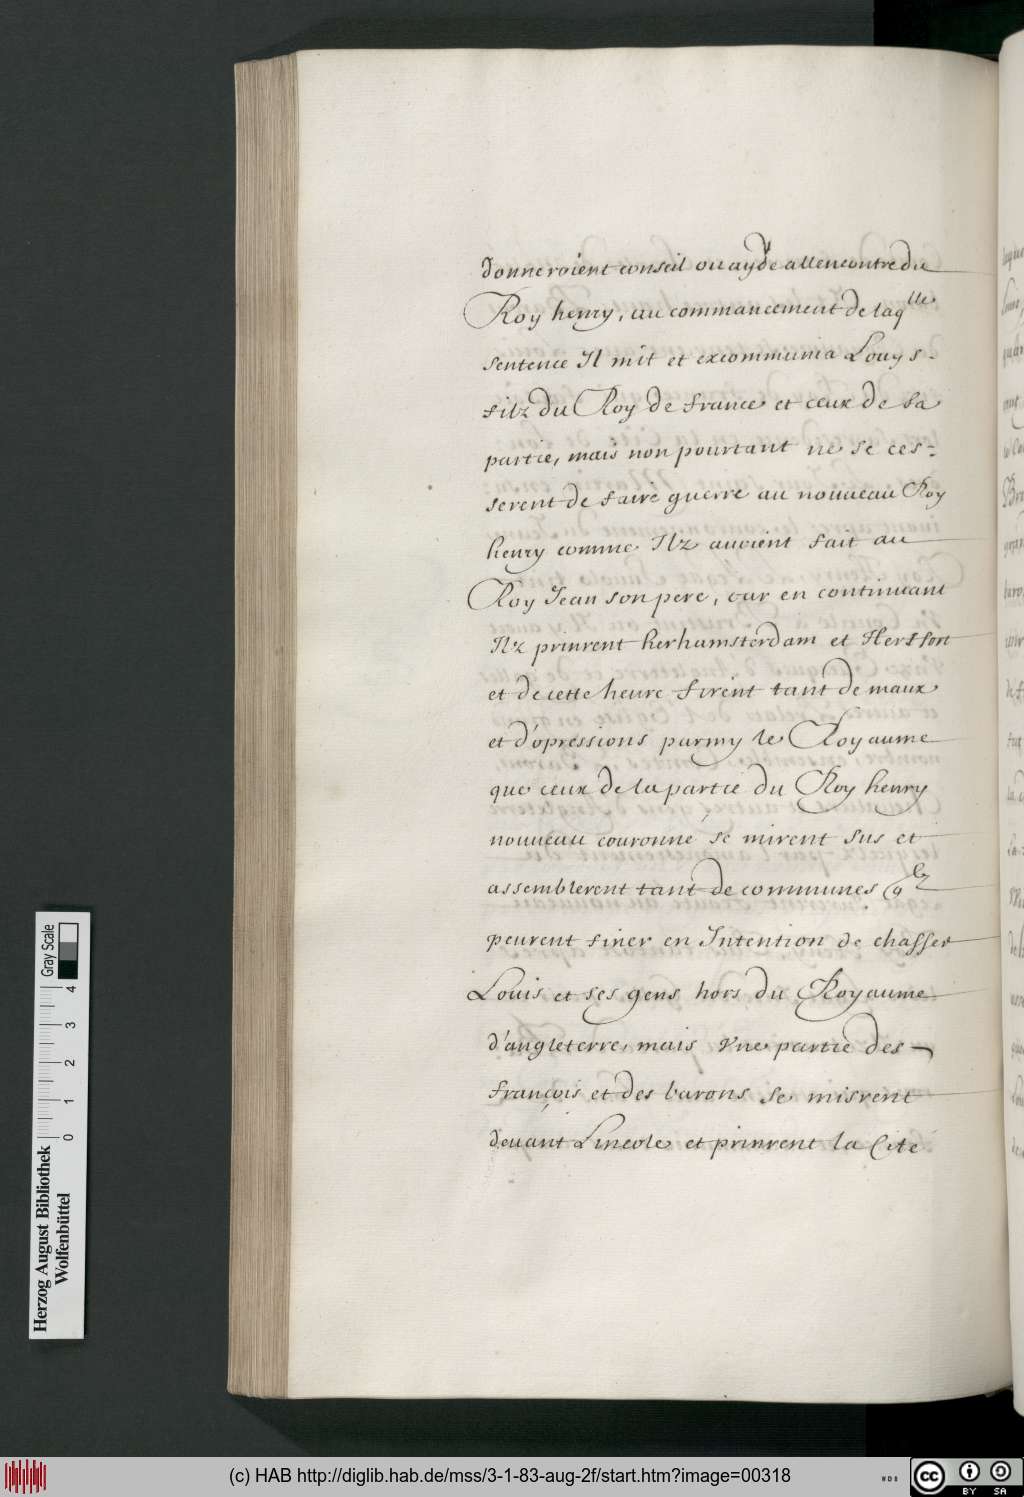 donneroient conseil ou ayde allencontre du
Roy henry, au commancement de laqlle
sentence Il mit et excommunia Louys
filz du Roy de france et ceux de sa
partie, mais non pourtant ne se ces-
serent de faire guerre au nouveau Roy
henry comme Ilz avoient fait au
Roy Jean son pere, car en continuant
Ilz prinrent herhamsterdam et Hertfort
et de cette heure firent tant de maux
et d'opressions parmy le Royaume
que ceux de la partie du Roy henry
nouveau couronné se mirent sus et
assemblerent tant de communes qlz
peurent finer en Intention de chasser
Louis et ses gens hors du Royaume
d'angleterre, mais Vne partie des
françois et des barons se misrent
devant Lincole et prinrent la Cite
Herzog August Bibliothek
Wolfenbüttel
Gray Scale
0 1 2 3 4
(c) HAB http://diglib.hab.de/mss/3-1-83-aug-2f/start.htm?image=00318
WDB
cc BY SA